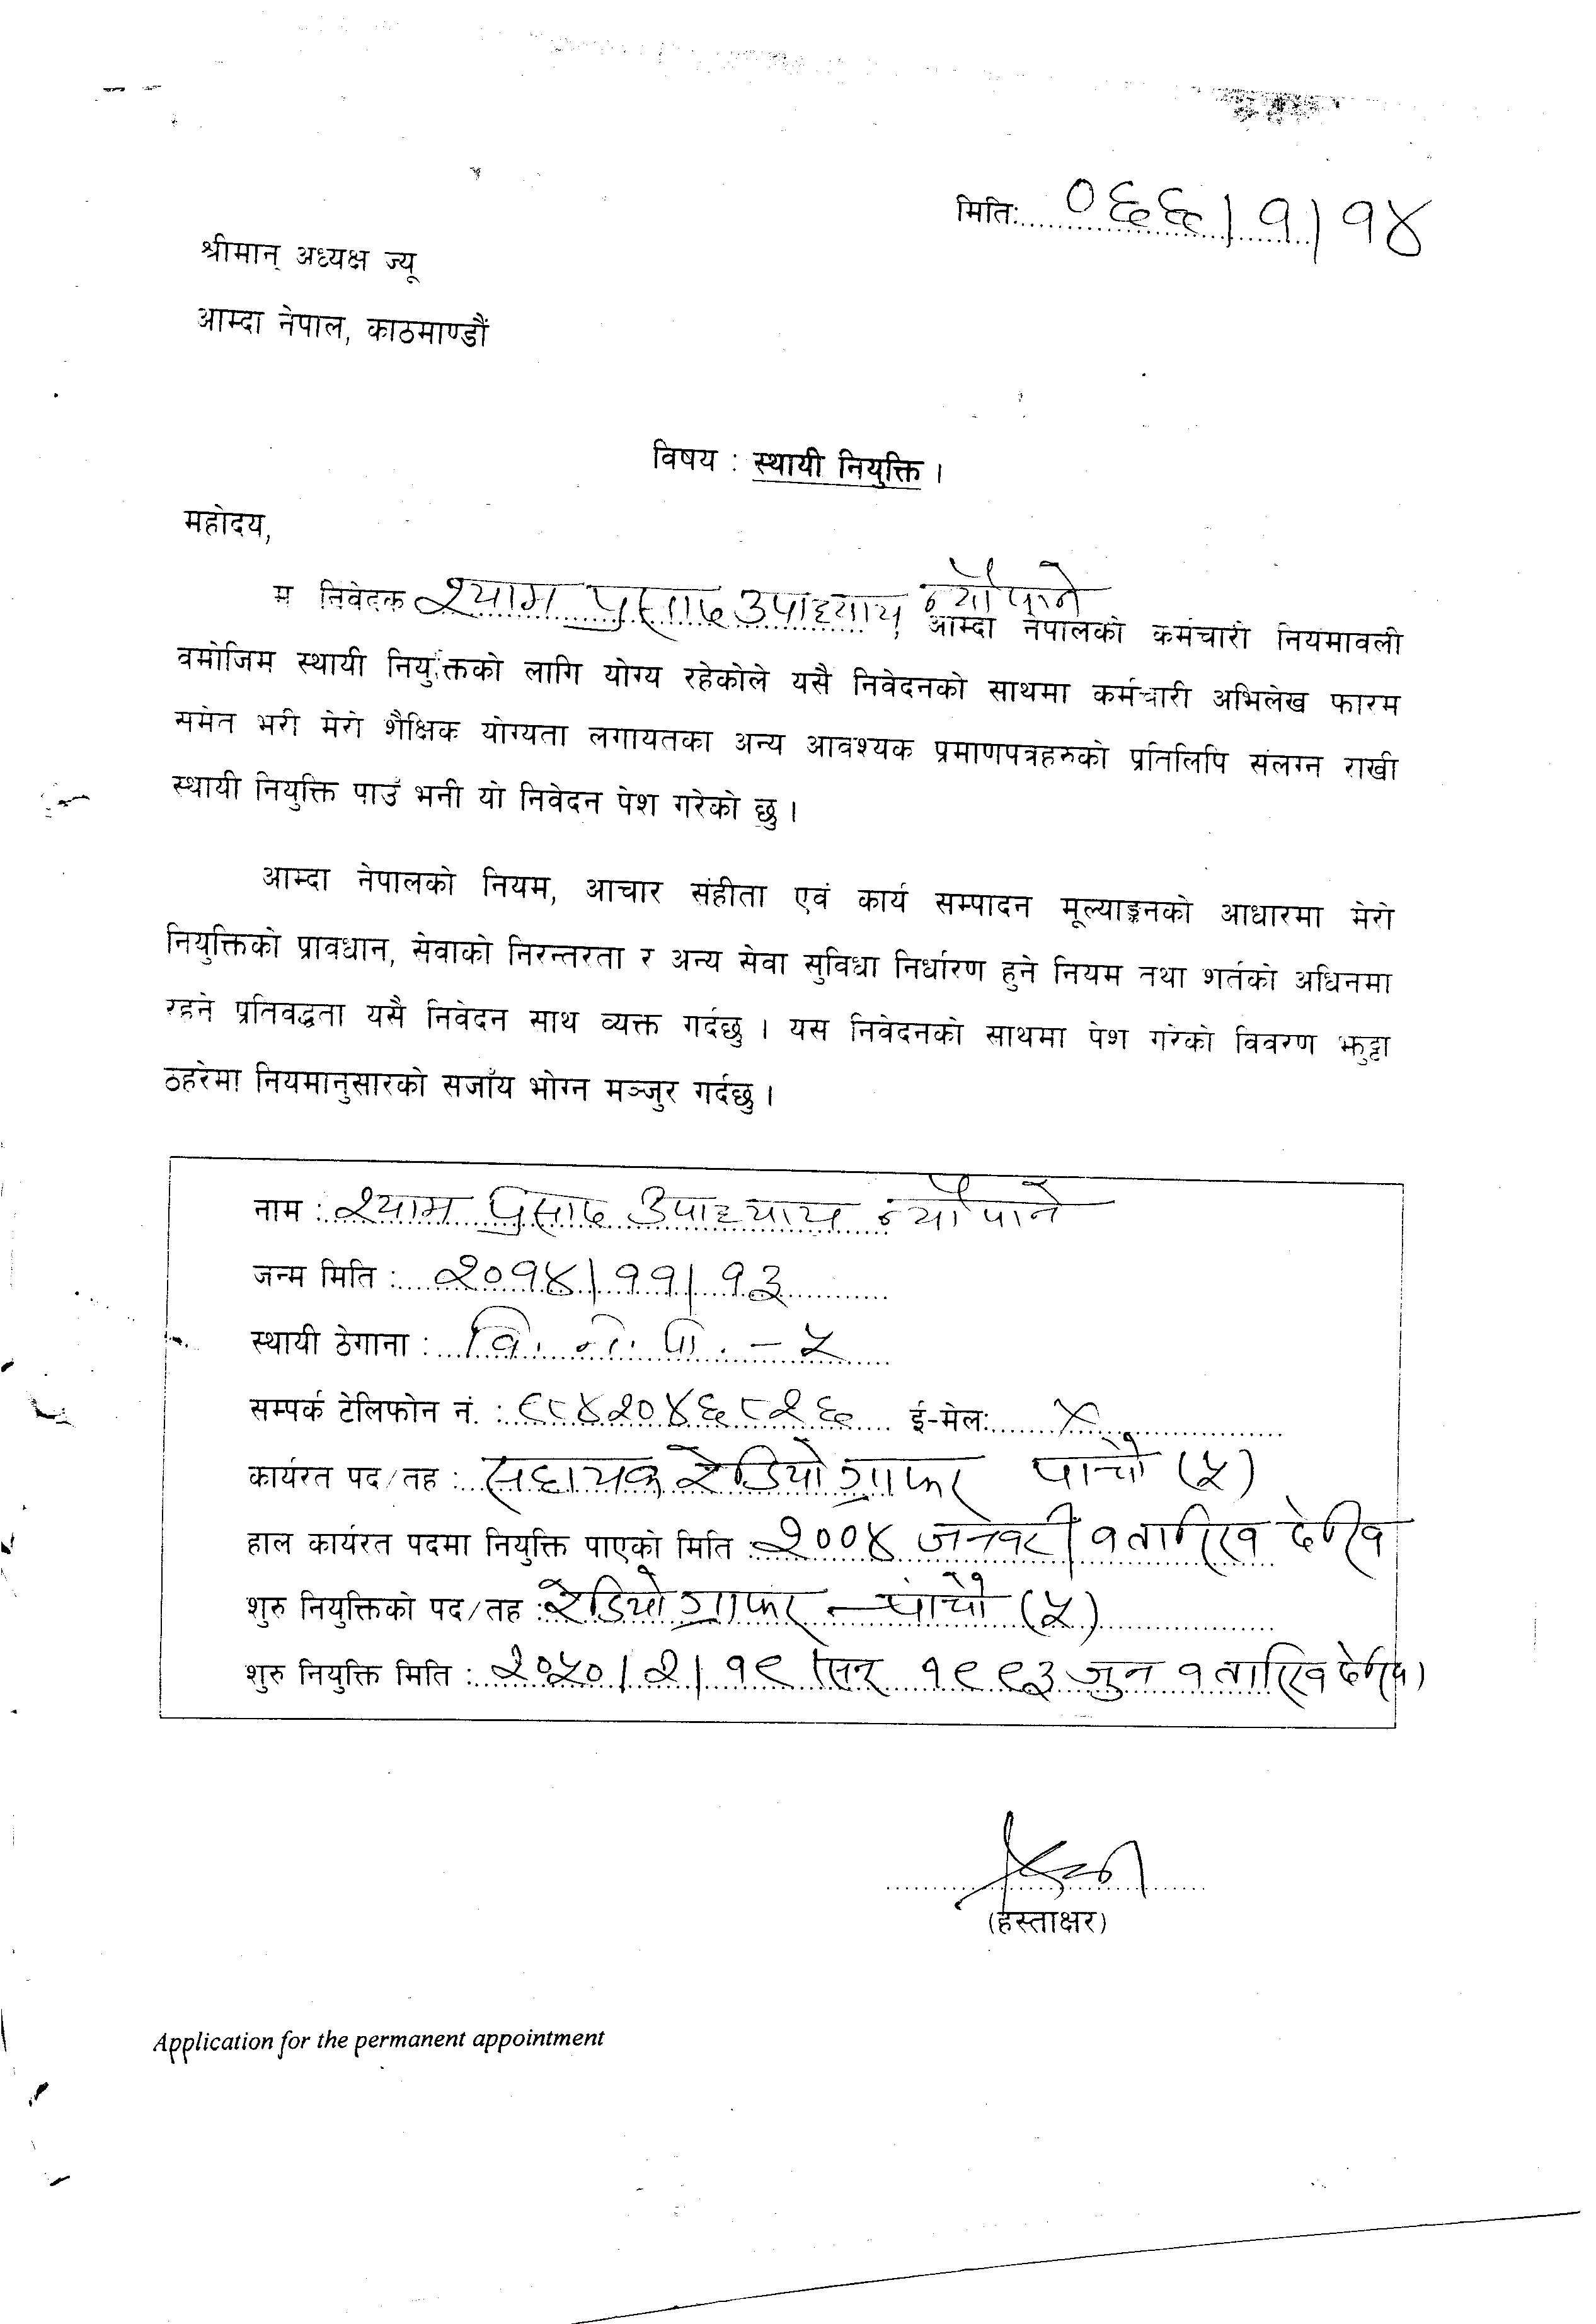 मितिः ०६६।१।१४
श्रीमान् अध्यक्ष ज्यू
आम्दा नेपाल, काठमाण्डौं
विषय : स्थायी नियुक्ति ।
महोदय,
म निवेदक श्याम प्रसाद उपाध्याय न्यौपाने आम्दा नेपालको कर्मचारी नियमावली
वमोजिम स्थायी नियुक्तिको लागि योग्य रहेकोले यसै निवेदनको साथमा कर्मचारी अभिलेख फारम
समेत भरी मेरो शैक्षिक योग्यता लगायतका अन्य आवश्यक प्रमाणपत्रहरुको प्रतिलिपि संलग्न राखी
स्थायी नियुक्ति पाउँ भनी यो निवेदन पेश गरेको छु ।
आम्दा नेपालको नियम, आचार संहीता एवं कार्य सम्पादन मूल्याङ्कनको आधारमा मेरो
नियुक्तिको प्रावधान, सेवाको निरन्तरता र अन्य सेवा सुविधा निर्धारण हुने नियम तथा शर्तको अधिनमा
रहने प्रतिवद्धता यसै निवेदन साथ व्यक्त गर्दछु । यस निवेदनको साथमा पेश गरेको विवरण झुट्टा
ठहरेमा नियमानुसारको सजाँय भोग्न मञ्जुर गर्दछु ।
नाम : श्याम प्रसाद उपाध्याय न्यौपाने
जन्म मिति : २०१४।११।१३
स्थायी ठेगाना : वि. न. पा. - ५
सम्पर्क टेलिफोन नं. : ९८४२०४६८२६ ई-मेल: x
कार्यरत पद/तह : सहायक रेडियोग्राफर पाचौं (५)
हाल कार्यरत पदमा नियुक्ति पाएको मिति २००४ जनवरी १ तारिख देखि
शुरु नियुक्तिको पद/तह : रेडियोग्राफर - पांचौं (५)
शुरु नियुक्ति मिति : २०५०।२।१९ (सन् १९९३ जुन १ तारिख देखि)
(हस्ताक्षर)
Application for the permanent appointment